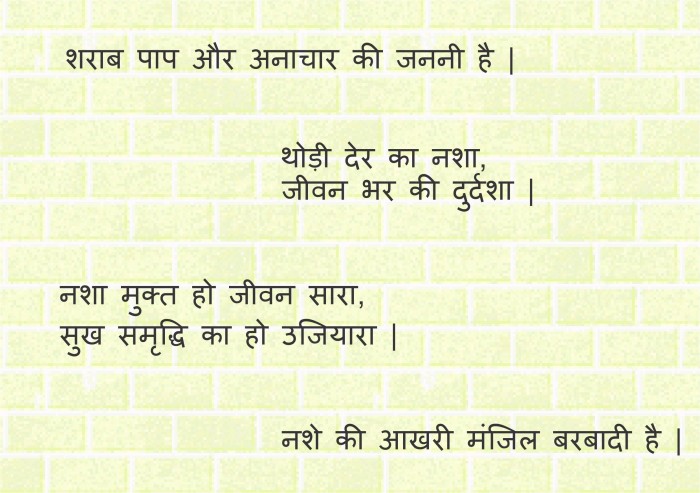 शराब पाप और अनाचार की जननी है |
थोड़ी देर का नशा,
जीवन भर की दुर्दशा |
नशा मुक्त हो जीवन सारा,
सुख समृद्धि का हो उजियारा |
नशे की आखरी मंजिल बरबादी है |